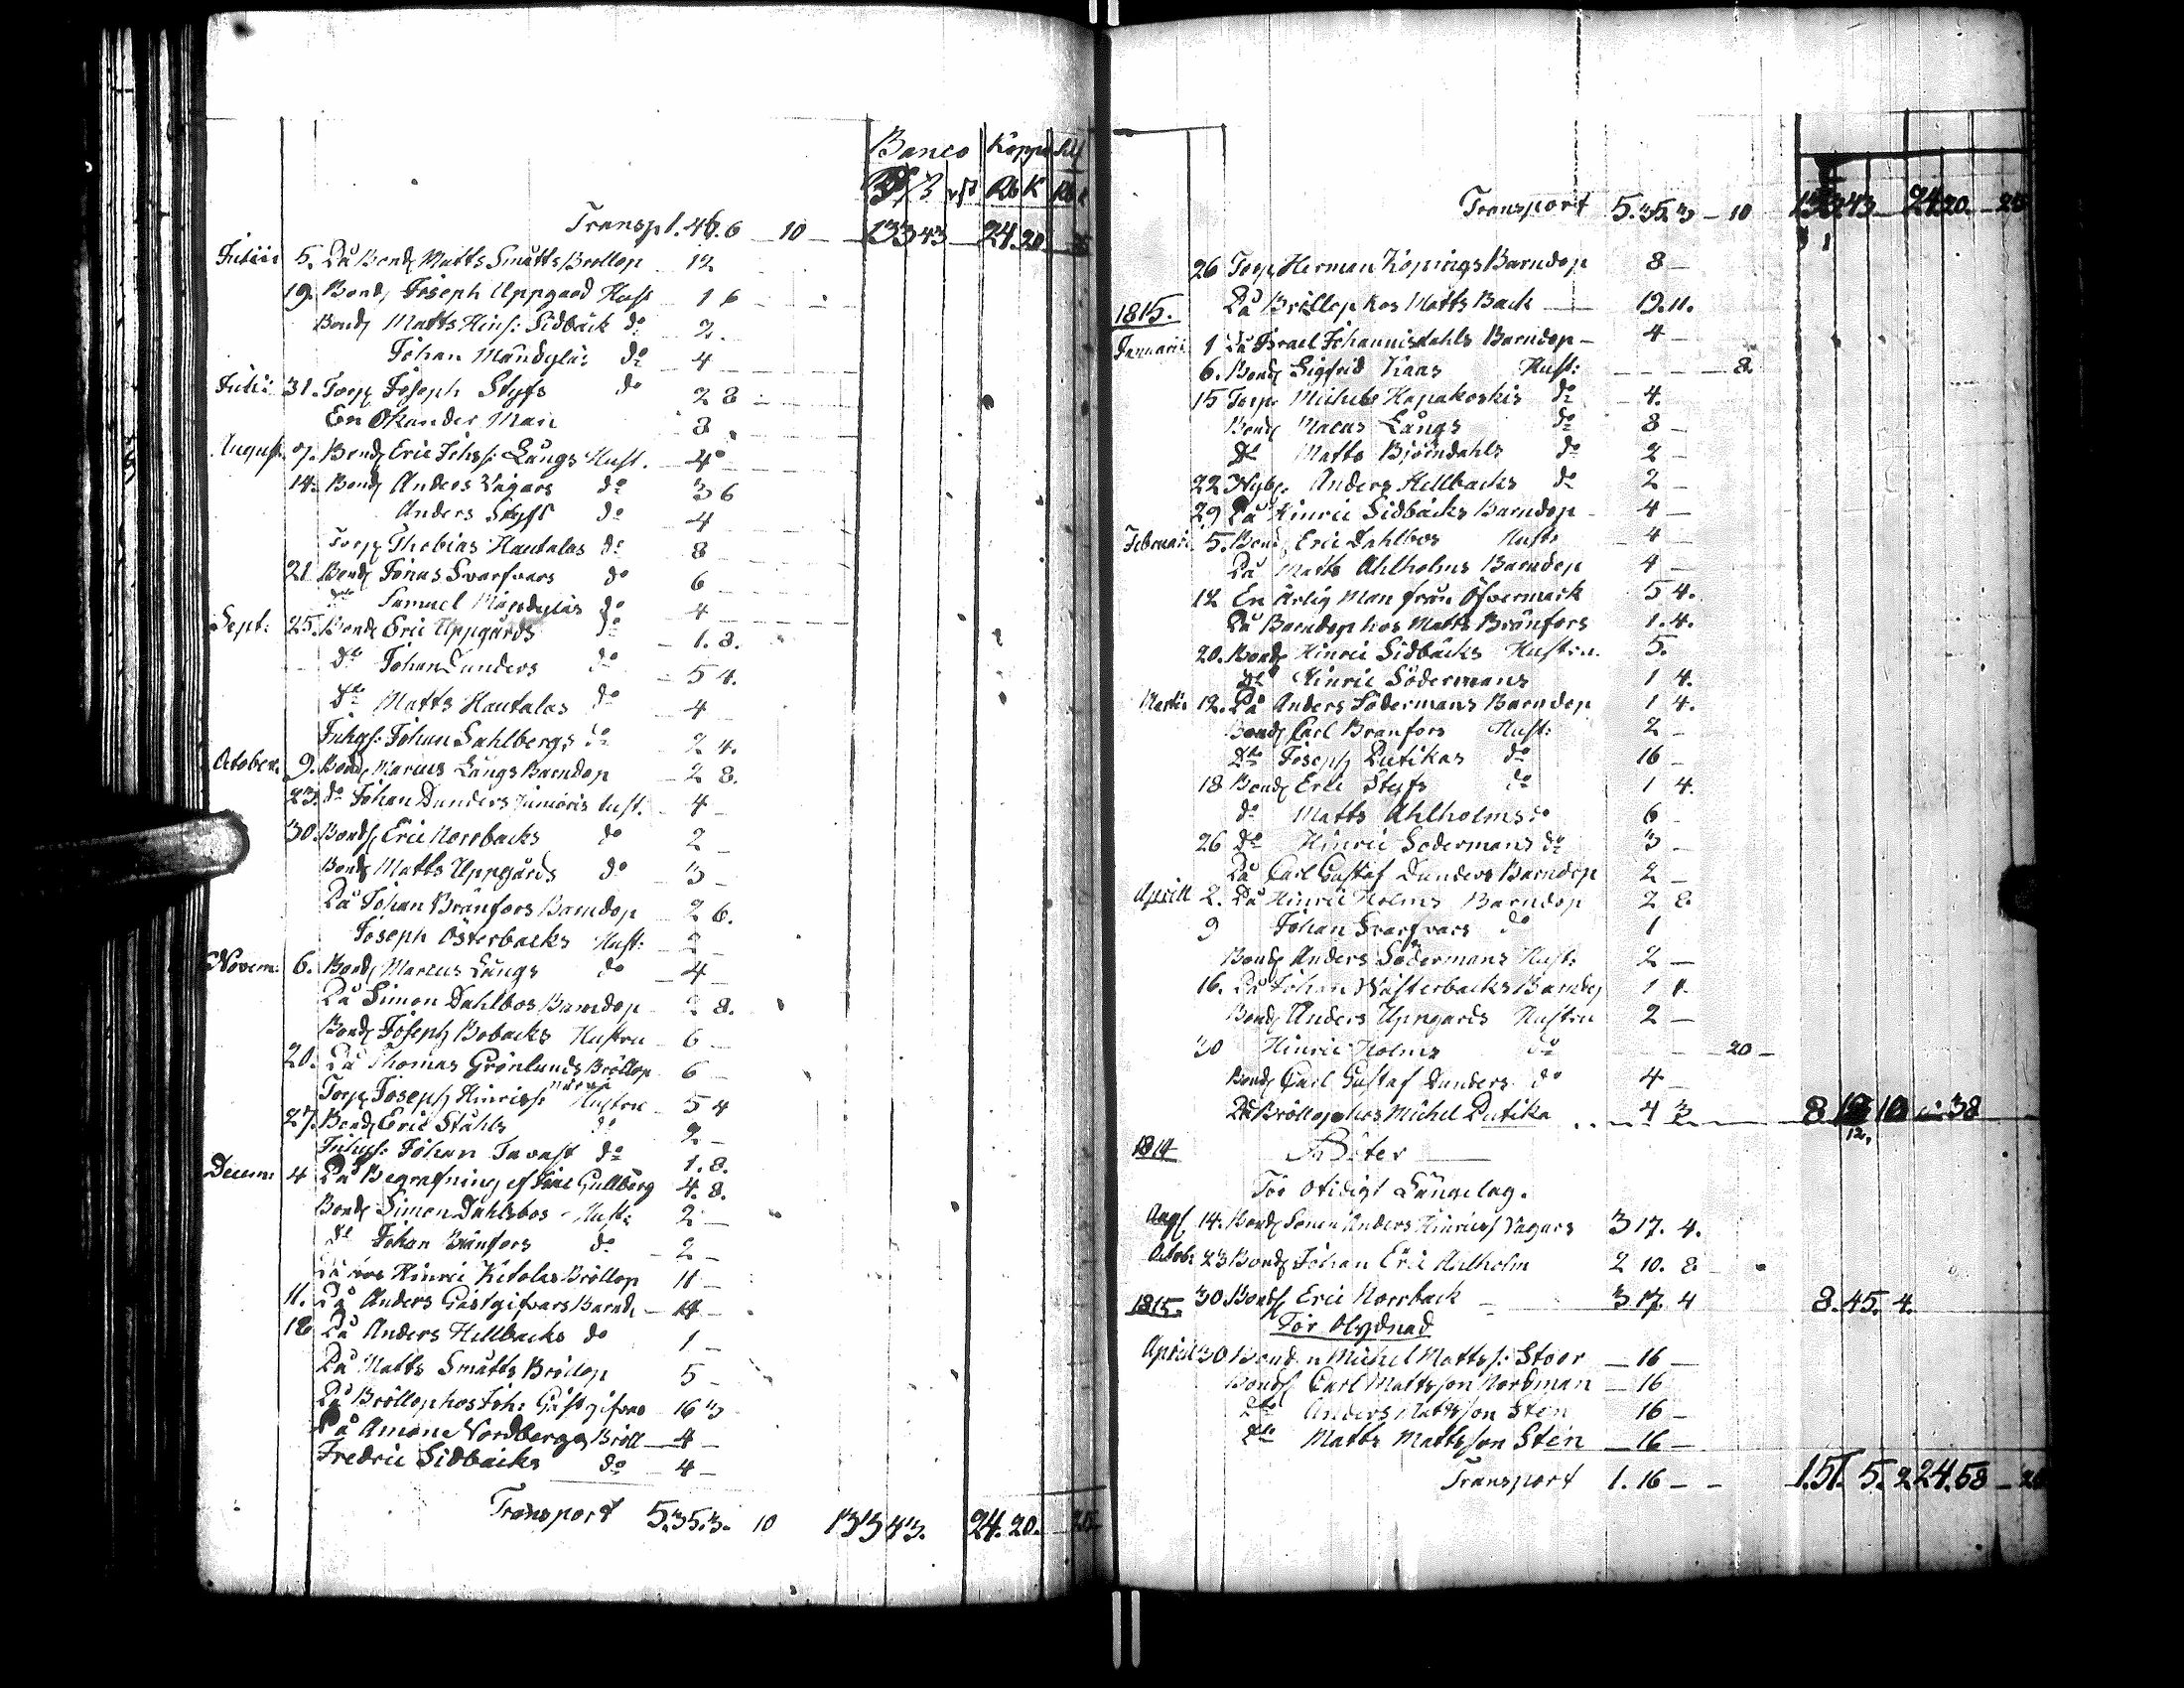 Banco Kopp Silf
Rd ß rst Rb K Rb K
Transp 1.46.6 — 10 — 133 43 — 24.20 — 25
Junii 5. På Bond Matts Smatts Brollop 12
19. Bond Joseph Uppgård Hust 1 6
Bond Matts Hins: Sidbäck do 2.
Johan Mandylas do 4
Julii 31. Torp Joseph Styfs do 2 8
En Okander Man 8
August 7. Bond Eric Johss: Långs Hust. 4
14. Bond Anders Vagars do 3 6
Anders Styfs do 4
Torp Thobias Hautalas do 8
21 Bond Jonas Svarfvars do 6
dto Samuel Mandylas do 4
Sept: 25. Bond Eric Uppgårds do 1.8.
dto Johan Dunders do 5 4.
dto Matts Hautalas do 4
Inhys: Johan Sahlbergs do 2 4.
October. 9. Bond Marcus Långs Barndop 2 8.
23. do Johan Dunders Junioris hust. 4
30. Bond Eric Norrbacks do 2
Bond Matts Uppgårds do 3
På Johan Brånfors Barndop 2 6.
Joseph Österbacks Hust: 2
Novem: 6. Bond Marcus Långs do 4
På Simon Dahlbos Barndop 2 8.
Bond Joseph Bobacks Hustru 6
20. På Thomas Grönlunds Bröllop 6
Torp Joseph Hinriss: Hustru 5 4
27. Bond Eric Ståhls do 2
Inhys: Johan Tavast do 1.8.
Decem: 4 På Begrafning ef Gullberg 4.8.
Bond Simon Dahlsbos Hust: 2
do Johan Brånfors do 2
På hos Hinric Ketolas Bröllop 11
11. På Anders Gästgifvars Barnd. 4
18 På Anders Hellbacks do 1
På Matts Smatts Bröllop 5
På Bröllop hos Joh: Gästgifvars 16 3
På Nordbergs Bröll 4
Fredric Sidbacks do 4
Transport 5.35.3. 10 133 43. 24.20. 25
Transport 5.35.3 — 10 133 43 24.20. — 25
26 Torp Herman Köpings Barndop 8
På Bröllop hos Matts Back 19.11.
1815.
Januarii 1 På Israel Johannisdahls Barndop 4
6. Bond Sigfrid Kaas Hust: 8.
15 Torp Michels Hapakoskis do 4.
Bond Marcus Långs do 8
dto Matts Björndahls do 2
22 Nyby Anders Hellbacks do 2
29 På Hinric Sidbäcks Barndop 4
Februari 5. Bond Eric Dahlbos Hust: 4
På Matts Ahlholms Barndop 4
12 En Ärlig Man från Öfvermark 5 4.
På Barndop hos Matts Brånfors 1.4.
20. Bond Hinric Sidbäcks Hustru. 5.
dto Hinric Södermans 1 4.
Martii 12. På Anders Södermans Barndop 1 4.
Bond Carl Branfors Hust: 2
dto Joseph Putikas do 16
18 Bond Eric Styfs do 1 4.
do Matts Ahlholms do 6
26 do Hinric Södermans do 3
På Carl Gustaf Dunders Barndop 2
Aprill 2. På Hinric Holms Barndop 2 8
9 Johan Svarfvars do 1
Bond Anders Södermans Hust: 2
16. På Johan Västerbacks Barndop 1
Bond Anders Uppgårds Hustru 2
30 Hinric Holms do 20
Bond Carl Gustaf Dunders do 4
På Bröllop hos Michel Putika 4 3 8 10 38
12.
1814 Böter
För otidigt Långelag.
Augs 14. Bond Sonen Anders Hinricss Vagars 3 17. 4.
Octob: 23 Bond Johan Eric Ahlholm 2 10. 8
30 Bond Eric Norrback 3 17. 4 8.45. 4.
1815. För Olydnad
April 30 Bonden Michel Mattss: Stoor 16
Bond Carl Mattsson Nordman 16
dto Anders Mattsson Sten 16
dto Matts Mattsson Sten 16
Transport 1.16 151. 5. 2 24.58